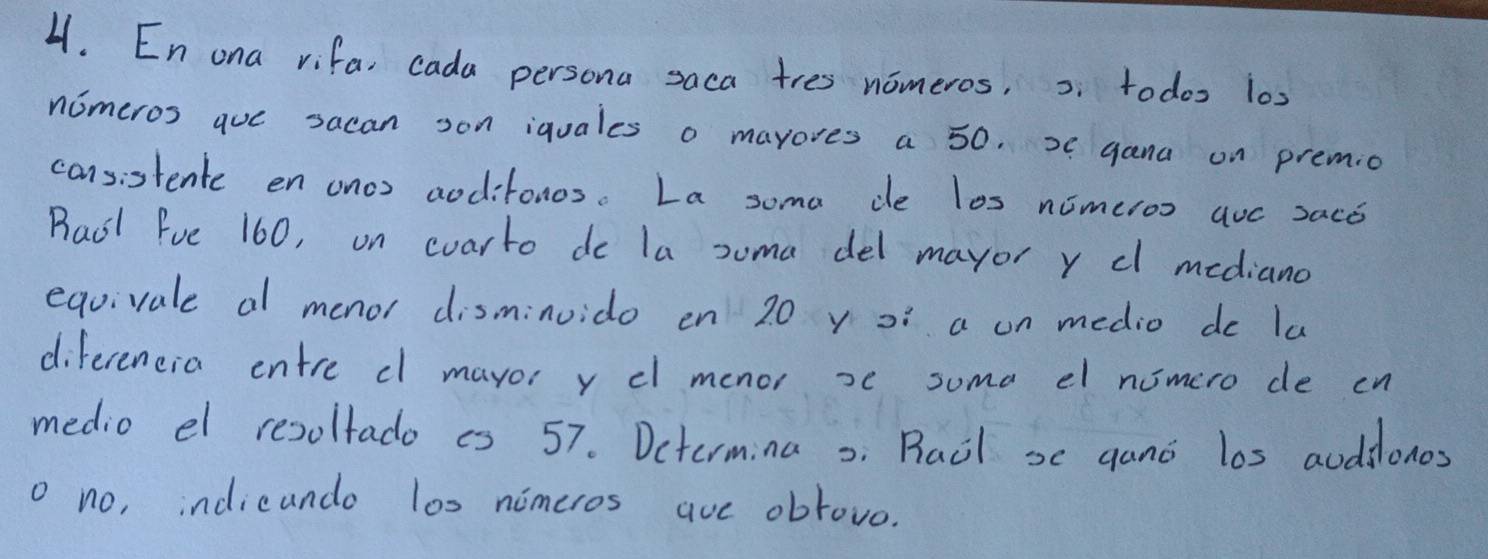 4. En una rifa, cada persona saca tres números, si todos los
números que sacan son iguales o mayores a 50, se gana un premio
consistente en unos audífonos. La suma de los números que sacó
Raúl fue 160, un cuarto de la suma del mayor y el mediano
equivale al menor disminuido en 20 y si a un medio de la
diferencia entre el mayor y el menor se suma el número de en
medio el resultado es 57. Determina si Raúl se ganó los audífonos
o no, indicando los números que obtuvo.